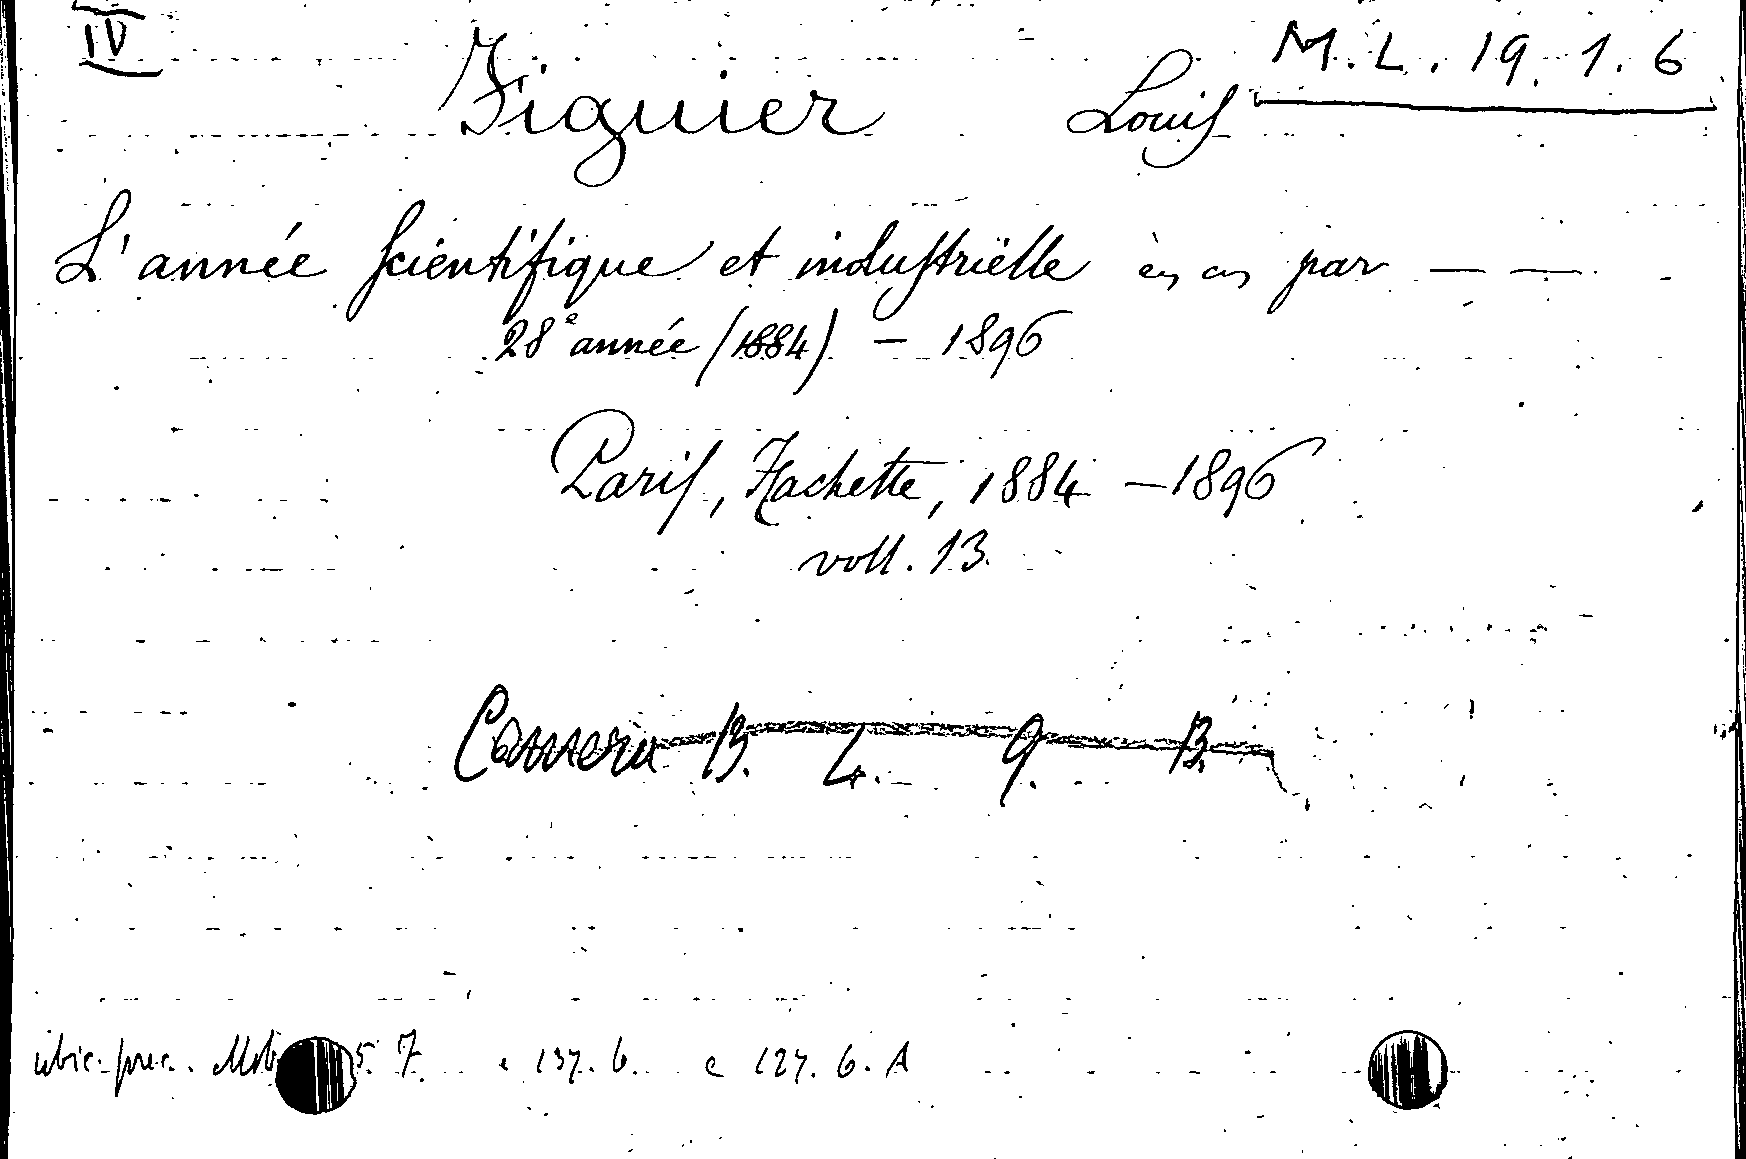 IV
M.L. 19. 1. 6
Figuier Louis
L'année scientifique et industriëlle par — —
28e année (1884) — 1896
Paris, Hachette, 1884 — 1896
voll. 13.
Camera B. 4. 9. B.
ubic. prec. 5. 7. e 137. 6. e 127. 6. A